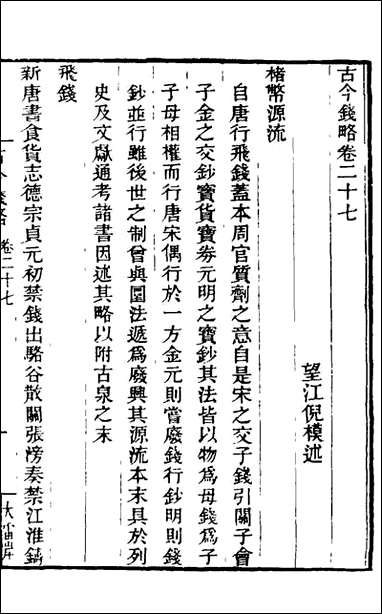 古今錢略卷二十七
望江倪模述
楮幣源流
自唐行飛錢蓋本周官質劑之意自是宋之交子錢引關子會
子金之交鈔寶貨寶券元明之寶鈔其法皆以物為母錢為子
子母相權而行唐宋偶行於一方金元則嘗廢錢行鈔明則錢
鈔並行雖後世之制曾與圜法遞為廢興其源流本末具於列
史及文獻通考諸書因述其略以附古泉之末
飛錢
新唐書食貨志德宗貞元初禁錢出駱谷散關張滂奏禁江淮鑄
卷二十七